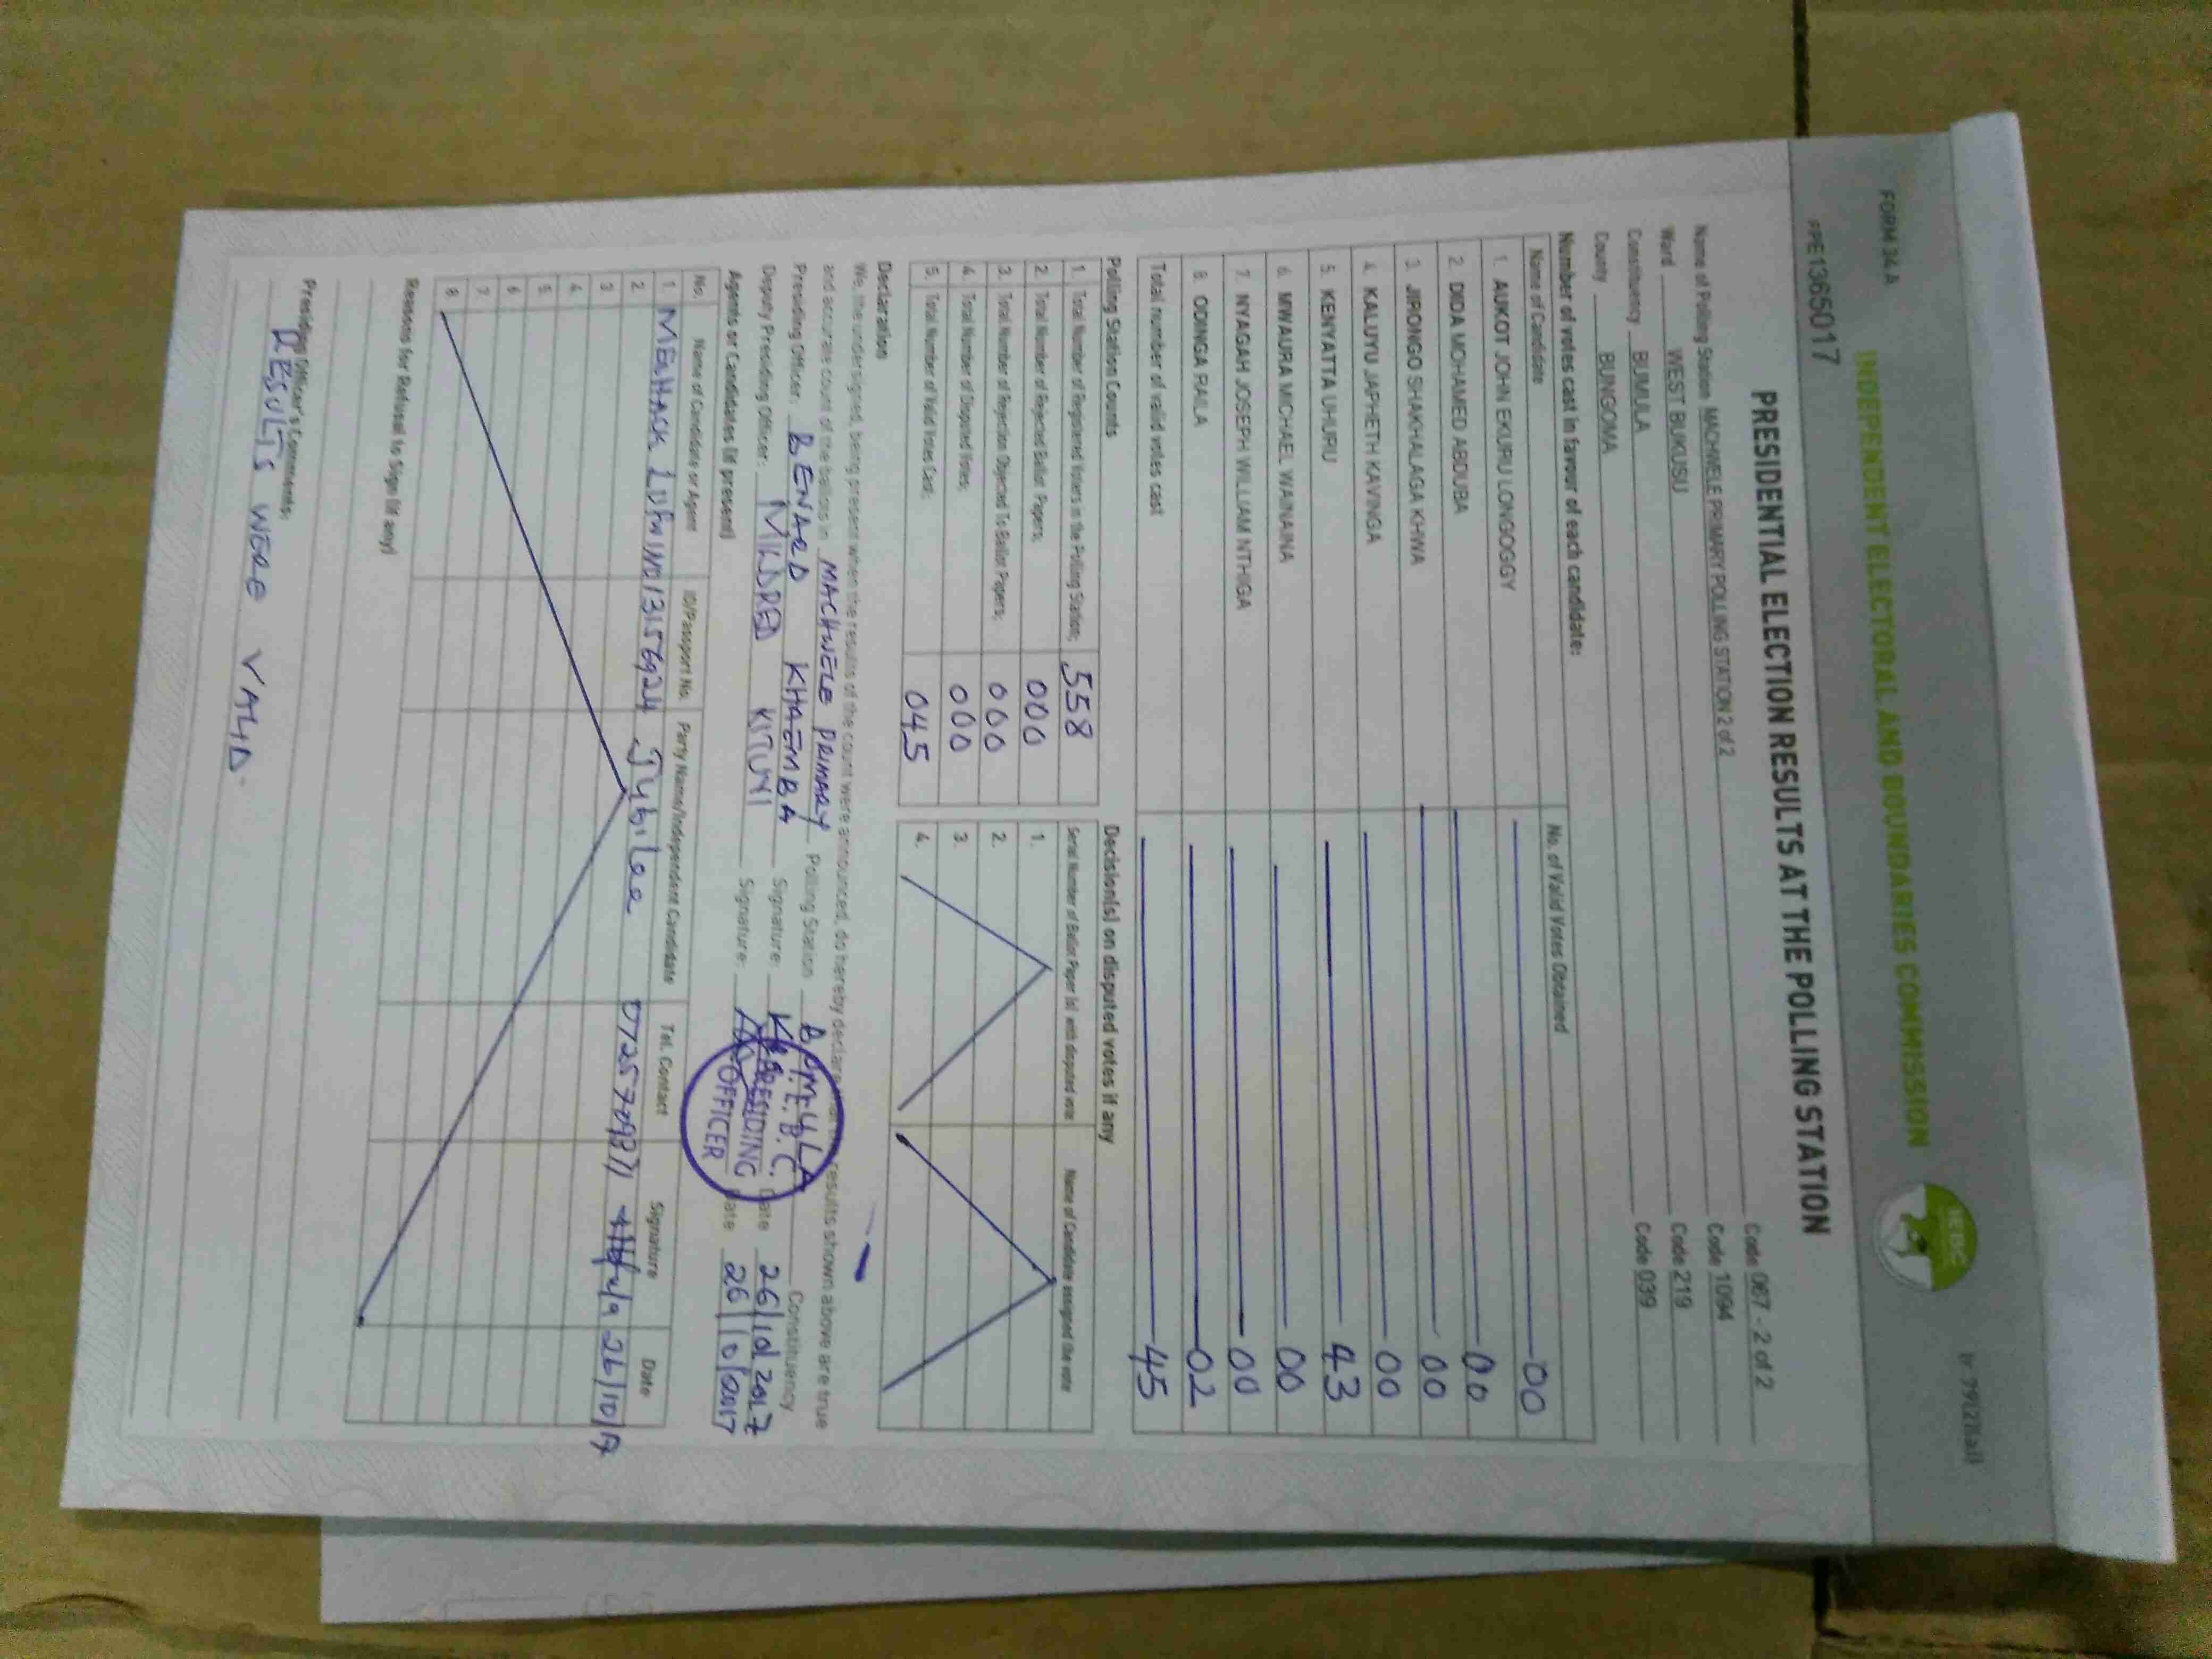 FORM 34 A
INDEPENDENT ELECTORAL AND BOUNDARIES COMMISSION
IEBC
PPE1365017
PRESIDENTIAL ELECTION RESULTS AT THE POLLING STATION
Name of Polling Station MACHWELE PRIMARY POLLING STATION 2 of 2 Code 067 - 2 of 2
Ward WEST BUKUSU Code 1094
Constituency BUMULA Code 219
County BUNGOMA Code 039
Number of votes cast in favour of each candidate:
Name of Candidate No. of Valid Votes Obtained
1. AUKOT JOHN EKURU LONGOGGY 00
2. DIDA MOHAMED ABDUBA 00
3. JIRONGO SHAKHALAGA KHWA 00
4. KALUYU JAPHETH KAVINGA 00
5. KENYATTA UHURU 43
6. MWAURA MICHAEL WAINAINA 00
7. NYAGAH JOSEPH WILLIAM NTHIGA 00
8. ODINGA RAILA 02
Total number of valid votes cast 45
Polling Station Counts Decision(s) on disputed votes if any
1. Total Number of Registered Voters in the Polling Station; 558 Serial Number of Ballot Paper (s) with disputed vote Name of Candidate assigned the vote
2. Total Number of Rejected Ballot Papers; 000 1.
3. Total Number of Rejection Objected To Ballot Papers; 000 2.
4. Total Number of Disputed Votes; 000 3.
5. Total Number of Valid Votes Cast; 045 4.
Declaration
We, the undersigned, being present when the results of the count were announced, do hereby declare results shown above are true
and accurate count of the ballots in MACHWELE PRIMARY Polling Station BUMULA Constituency
Presiding Officer: BENARD KHAEMBA Signature: Date 26/10/2017
Deputy Presiding Officer: MILDRED KITUYI Signature: Date 26/10/2017
I.E.B.C.
PRESIDING
OFFICER
Agents or Candidates (if present)
No. Name of Candidate or Agent ID/Passport No. Party Name/Independent Candidate Tel. Contact Signature Date
1. 13156924 Jubilee 26/10/17
2.
3.
4.
5.
6.
7.
8.
Reasons for Refusal to Sign (if any)
Presiding Officer's Comments:
RESULTS WERE VALID.